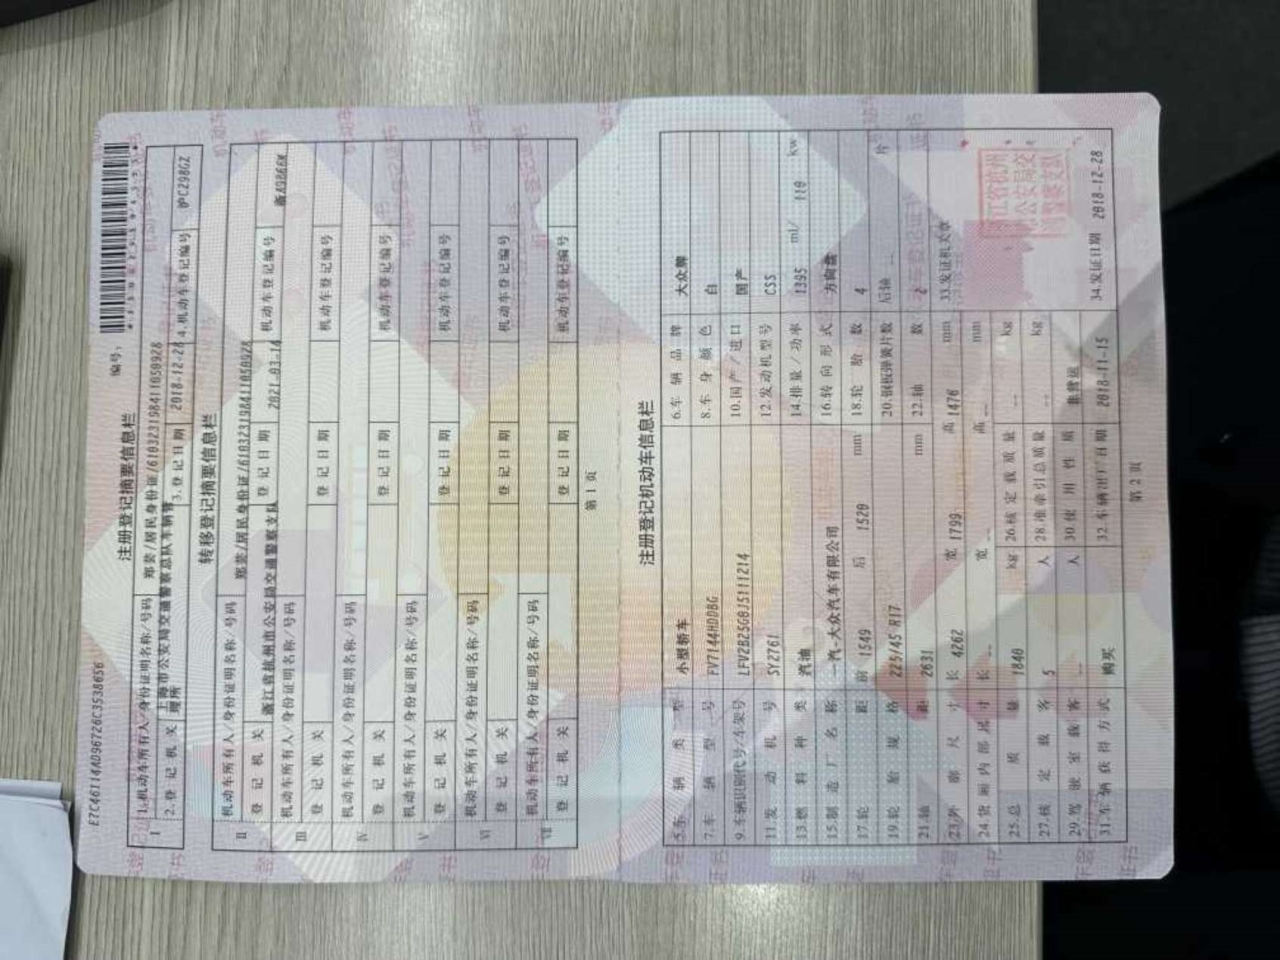 E7C46114AD96726C3538656
编号:
注册登记摘要信息栏
I 1.机动车所有人/身份证明名称/号码 郑芸/居民身份证/610323198411050928
2.登记机关 上海市公安局交通警察总队车辆管理所 3.登记日期 2018-12-28 4.机动车登记编号 沪C298GZ
转移登记摘要信息栏
II 机动车所有人/身份证明名称/号码 郑芸/居民身份证/610323198411050928
登记机关 浙江省杭州市公安局交通警察支队 登记日期 2021-03-14 机动车登记编号
III 机动车所有人/身份证明名称/号码
登记机关 登记日期 机动车登记编号
IV 机动车所有人/身份证明名称/号码
登记机关 登记日期 机动车登记编号
V 机动车所有人/身份证明名称/号码
登记机关 登记日期 机动车登记编号
VI 机动车所有人/身份证明名称/号码
登记机关 登记日期 机动车登记编号
VII 机动车所有人/身份证明名称/号码
登记机关 登记日期 机动车登记编号
第1页
注册登记机动车信息栏
5.车辆类型 小型轿车 6.车辆品牌 大众牌
7.车辆型号 FV7144HDDBG 8.车身颜色 白
9.车辆识别代号/车架号 LFV2B25G8J5111214 10.国产/进口 国产
11.发动机号 SY2761 12.发动机型号 CSS
13.燃料种类 汽油 14.排量/功率 1395 ml/ 110 kw
15.制造厂名称 一汽-大众汽车有限公司 16.转向形式 方向盘
17.轮距 前 1549 后 1520 mm 18.轮胎数 4
19.轮胎规格 225/45 R17 20.钢板弹簧片数 后轴 -- 片
21.轴距 2631 mm 22.轴数 2
23.外廓尺寸 长 4262 宽 1799 高 1476 mm 33.发证机关章
24.货厢内部尺寸 长 -- 宽 -- 高 -- mm
25.总质量 1840 kg 26.核定载质量 -- kg
27.核定载客 5 人 28.准牵引总质量 -- kg
29.驾驶室载客 -- 人 30.使用性质 非营运
31.车辆获得方式 购买 32.车辆出厂日期 2018-11-15 34.发证日期 2018-12-28
第2页